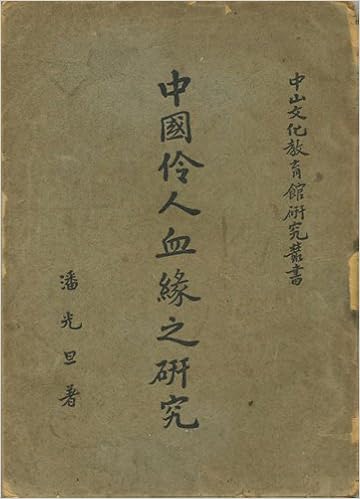 中山文化教育館研究叢書
中國伶人血緣之研究
潘光旦著